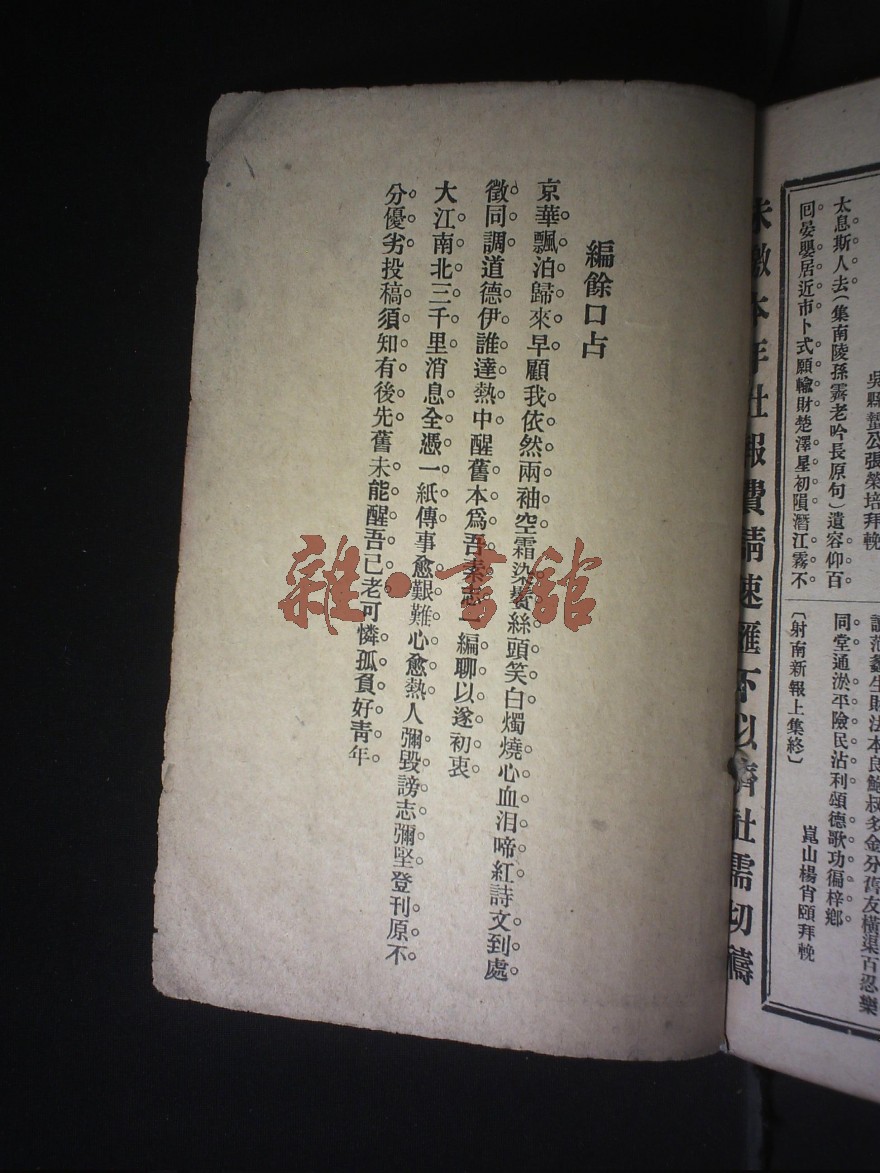 吳縣蟄公張榮培拜輓
太息斯人去(集南陵孫霽老吟長原句)遺容仰百
回晏嬰居近市卜式願輸財楚澤星初隕潛江霧不
范鑫生財法本良鮑叔多金分舊友橫渠百忍樂
同堂通淤平險民沾利頌德歌功徧梓鄉
崑山楊肯頤拜輓
〔射南新報上集終〕
本年社報費請速匯下以濟社需切禱
編餘口占
京華飄泊歸來早。顧我依然兩袖空。霜染鬢絲頭笑白。燭燒心血泪啼紅。詩文到處
徵同調。道德伊誰達熱中。醒舊本爲吾素志。一編聊以遂初衷
大江南北三千里。消息全憑一紙傳。事愈艱難心愈熱。人彌毀謗志彌堅。登刊原不
分優劣。投稿須知有後先。舊未能醒吾已老。可憐孤負好青年。
雜·書舘